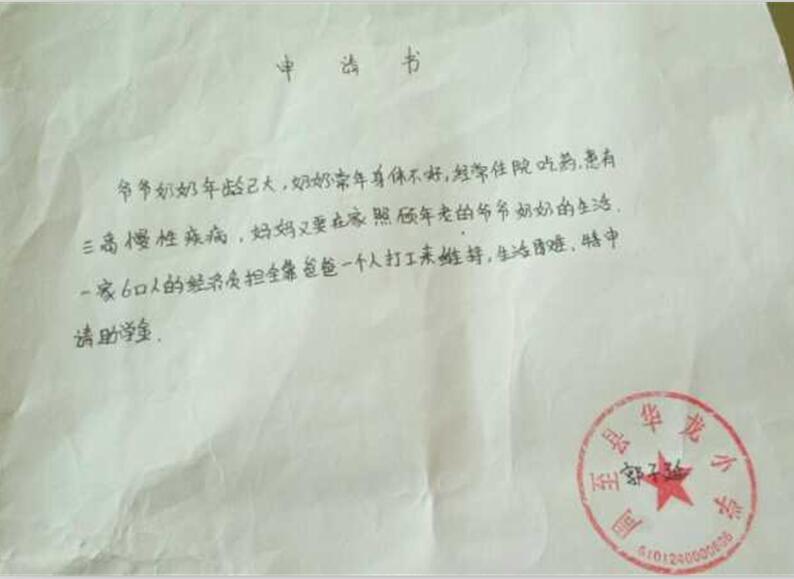 申请书
爷爷奶奶年龄已大，奶奶常年身体不好，经常住院吃药，患有
三高慢性疾病，妈妈又要在家照顾年老的爷爷奶奶的生活．
一家6口人的经济负担全靠爸爸一个人打工来维持，生活困难．特申
请助学金．
周至县华龙小学
郭子